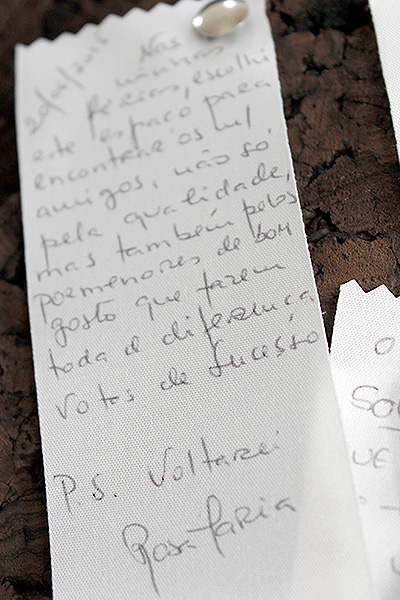 Nas
minhas
férias, escolhi
este espaço para
encontrar os m/
amigos, não só,
pela qualidade,
mas também pelos
pormenores de bom
gosto que fazem
toda a diferença
Votos de Sucesso
P.S. Voltarei
Rosa Faria
O
SO
UE